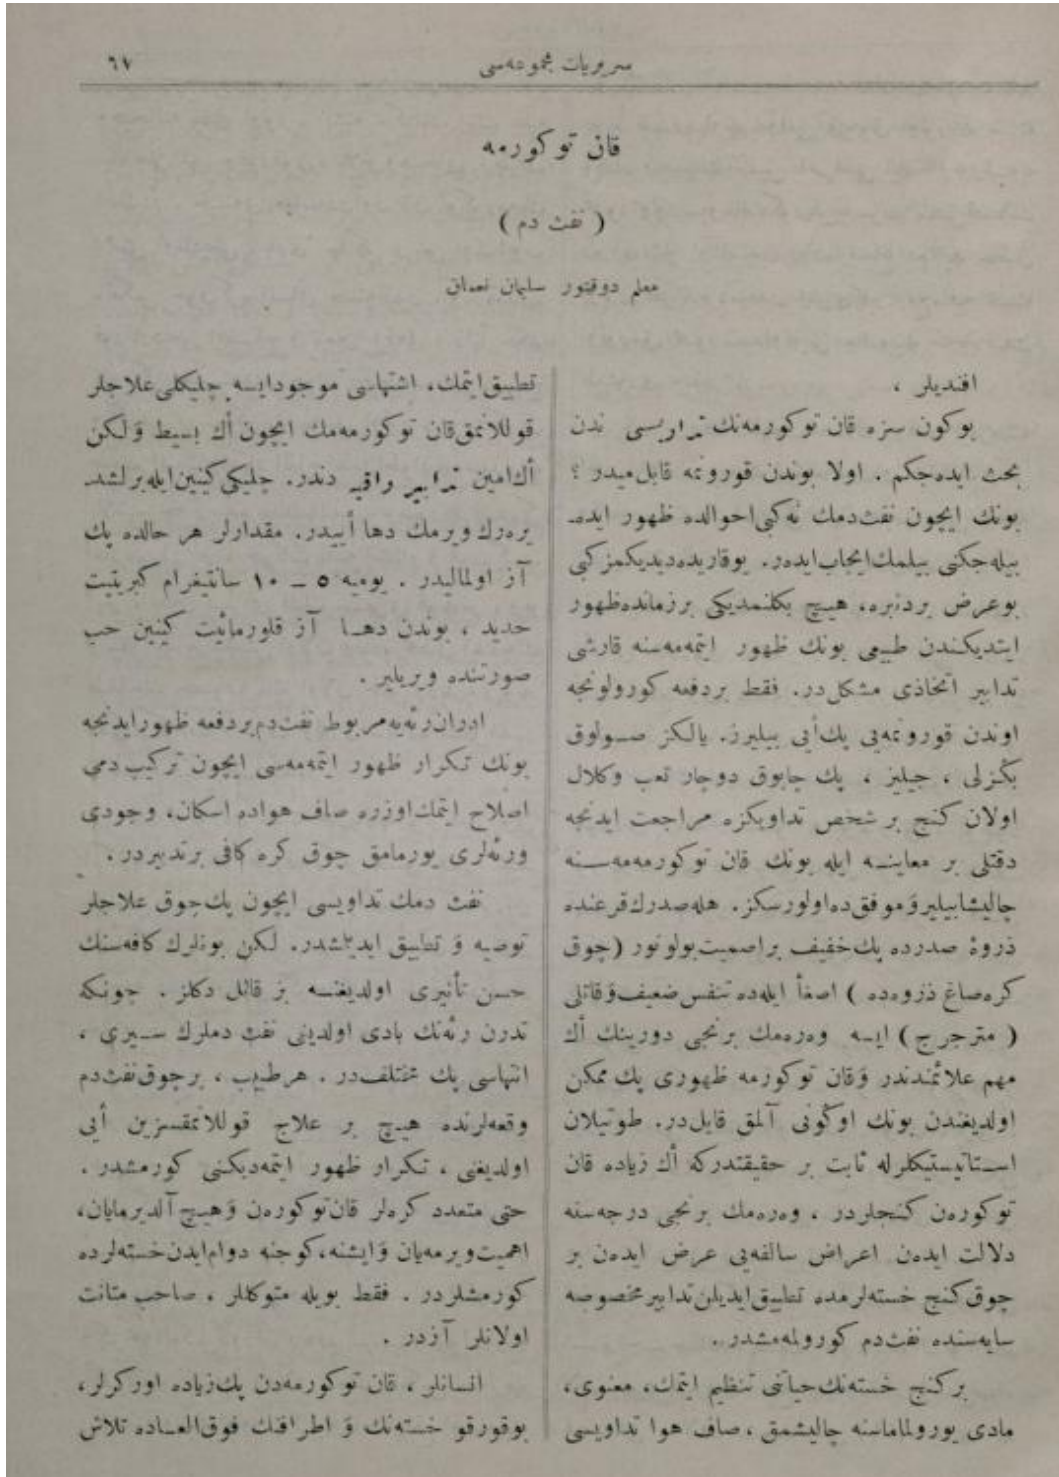 سريريات مجموعه‌سى
٦٧
قان توكورمه
( نفث دم )
معلم دوقتور سليمان نعمان
افنديلر ،
بوكون سزه قان توكورمه‌نك تداويسى ندن
بحث ايده‌جكم . اولا بوندن قورونمه قابل‌ميدر ؟
بونك ايچون نفث‌دمك نه‌كبى احوالده ظهور ايده‌ـ
بيله‌جكنى بيلمك ايجاب ايده‌ر. يوقاريده ديديكمز كبى
بو عرض بردنبره، هيچ بكلنمديكى بر زمانده ظهور
ايتديكندن طبيعى بونك ظهور ايتمه‌مه‌سنه قارشى
تدابير اتخاذى مشكل‌در. فقط بر دفعه كورولونجه
اوندن قورونمه‌يى پك‌أيى بيليرز. يالكز صولوق
بكزلى ، جيليز ، پك چابوق دوچار تعب وكلال
اولان كنج بر شخص تداويكزه مراجعت ايدنجه
دقتلى بر معاينه ايله بونك قان توكورمه‌مه‌سنه
چاليشابيلير وَ موفق ده اولورسكز. هله صدرك قرعنده
ذروۀ صدرده پك خفيف بر اصميت بولونور (چوق
كره صاغ ذروه‌ده ) اصغأ ايله‌ده تنفس ضعيف وَ قاتلى
( مترجرج ) ايسه وه‌ره‌مك برنجى دورينك أك
مهم علائمندندر وَ قان توكورمه ظهورى پك ممكن
اولديغندن بونك اوكونى آلمق قابل‌در. طوتيلان
استاتيستيكلرله ثابت بر حقيقتدركه أك زياده قان
توكوره‌ن كنجلردر ، وه‌ره‌مك برنجى درجه‌سنه
دلالت ايده‌ن اعراض سالفه‌يى عرض ايده‌ن بر
چوق كنج خسته‌لرمده تطبيق ايديلن تدابير مخصوصه
سايه‌سنده نفث‌دم كورولمه‌مشدر.
بر كنج خسته‌نك حياتنى تنظيم ايتمك، معنوى،
مادى يورولماماسنه چاليشمق ، صاف هوا تداويسى
تطبيق ايتمك، اشتهاسى موجود ايسه چليكلى علاجلر
قوللانمق قان توكورمه‌مك ايچون أك بسيط وَ لكن
أك امين تدابير واقيه دندر. چليكى كينين ايله برلشدـ
يره‌رك ويرمك دها أييدر. مقدارلر هر حالده پك
آز اولماليدر . يوميه ٥ ـ ١٠ سانتيغرام كبريتيت
حديد ، بوندن دها آز قلورمائيت كينين حب
صورتنده ويريلير .
ادران رئه‌يه مربوط نفث‌دم بر دفعه ظهور ايدنجه
بونك تكرار ظهور ايتمه‌مه‌سى ايچون تركيب دمى
اصلاح ايتمك اوزره صاف هواده اسكان، وجودى
ورئه‌لرى يورمامق چوق كره كافى بر تدبيردر .
نفث دمك تداويسى ايچون پك چوق علاجلر
توصيه وَ تطبيق ايديلمشدر. لكن بونلرك كافه‌سنك
حسن تأثيرى اولديغنه بز قائل دكلز . چونكه
تدرن رئه‌نك بادى اولديغى نفث دملرك سيرى ،
انتهاسى پك مختلف‌در . هر طبيب ، بر چوق نفث‌دم
وقعه‌لرنده هيچ بر علاج قوللانمقسزين أيى
اولديغنى ، تكرار ظهور ايتمه‌ديكنى كورمشدر .
حتى متعدد كره‌لر قان توكوره‌ن وَ هيچ آلديرمايان،
اهميت ويرمه‌يان وَ ايشنه، كوجنه دوام ايدن خسته‌لرده
كورمشلردر . فقط بويله متوكللر ، صاحب متانت
اولانلر آزدر .
انسانلر ، قان توكورمه‌دن پك زياده اوركرلر،
بو قورقو خسته‌نك وَ اطرافنك فوق‌العاده تلاش